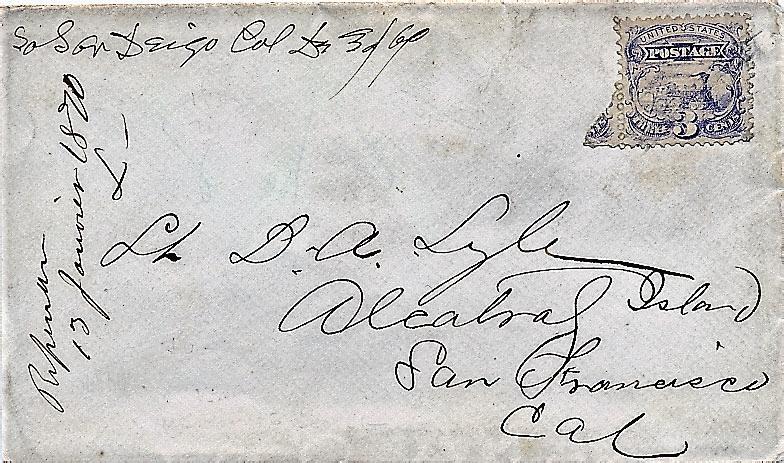 So San Deigo Cal De 3d/69
UNITED STATES
POSTAGE
3 CENTS
13 janvier 1870
Lt D. A. Lyle
Alcatraz Island
San Francisco
Cal